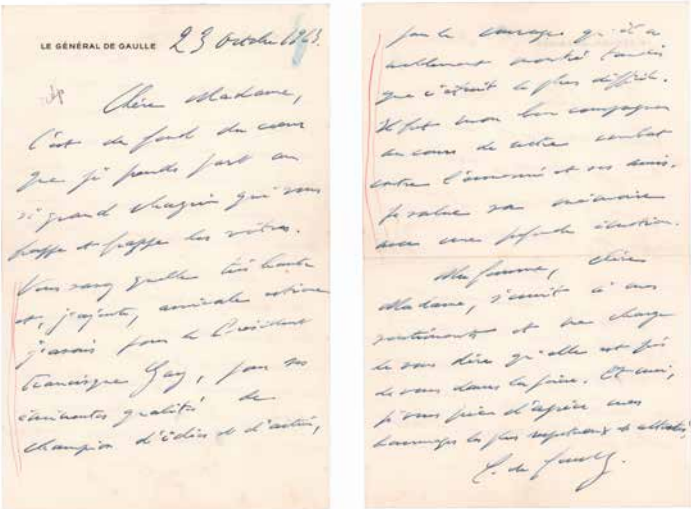 LE GÉNÉRAL DE GAULLE 23 octobre 1963.
Chère Madame,
C'est du fond du cœur
que je prends part au
si grand chagrin qui vous
frappe et frappe les vôtres.
Vous savez quelle très haute
et, j'ajoute, amicale estime
j'avais pour le Président
Francisque Gay, pour ses
éminentes qualités de
champion d'idées et d'action,
pour le courage qu'il a
noblement montré tandis
que c'était le plus difficile.
Il fut mon bon compagnon
au cours de notre combat
contre l'ennemi et ses amis.
Je salue sa mémoire
avec une profonde émotion.
Ma femme, chère
Madame, s'unit à mes
sentiments et me charge
de vous dire qu'elle est près
de vous dans la peine. Et moi,
je vous prie d'agréer mes
hommages les plus respectueux et attristés,
C. de Gaulle.